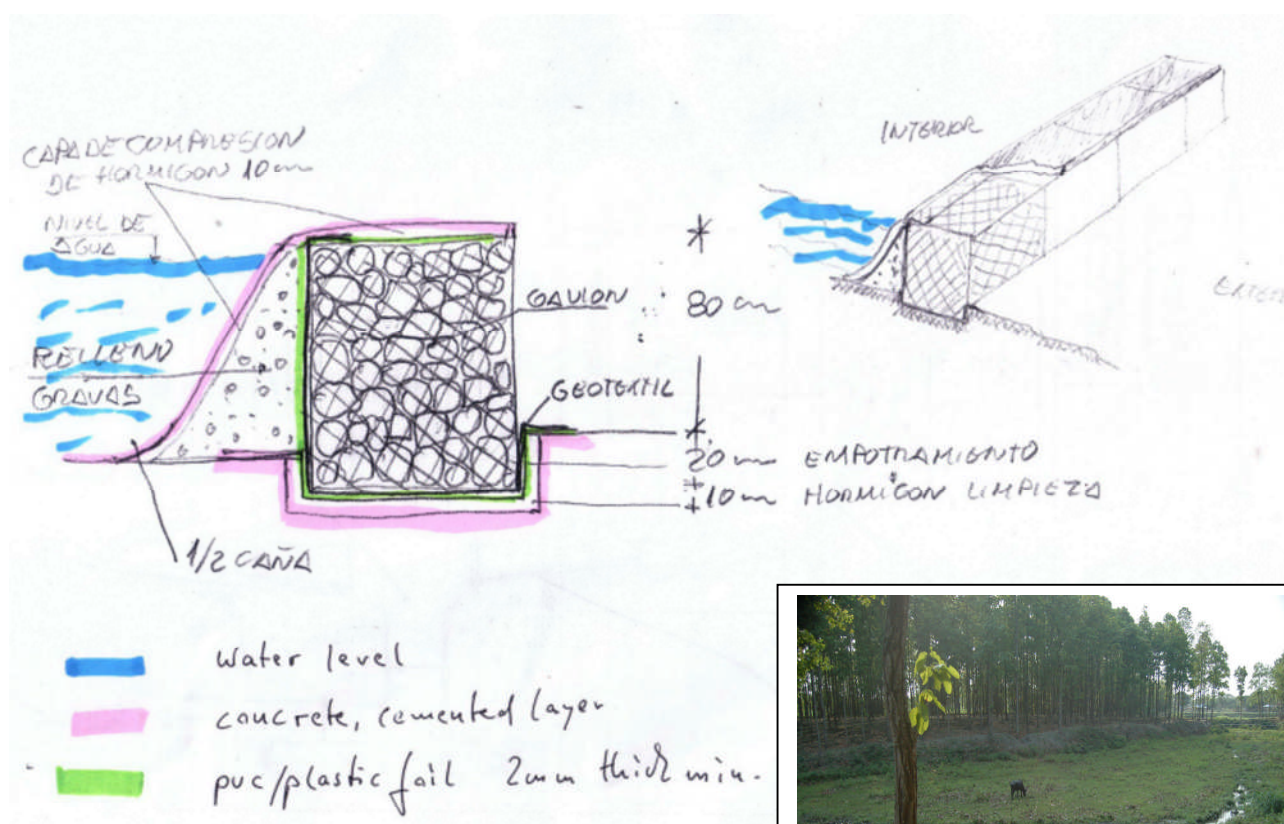 CAPA DE COMPRESION
DE HORMIGON 10 cm
NIVEL DE
AGUA
RELLENO
GRAVAS
1/2 CAÑA
GAVION
80 cm
GEOTEXTIL
20 cm EMPOTRAMIENTO
10 cm HORMIGON LIMPIEZA
INTERIOR
water level
concrete, cemented layer
pvc/plastic foil 2mm thick min.